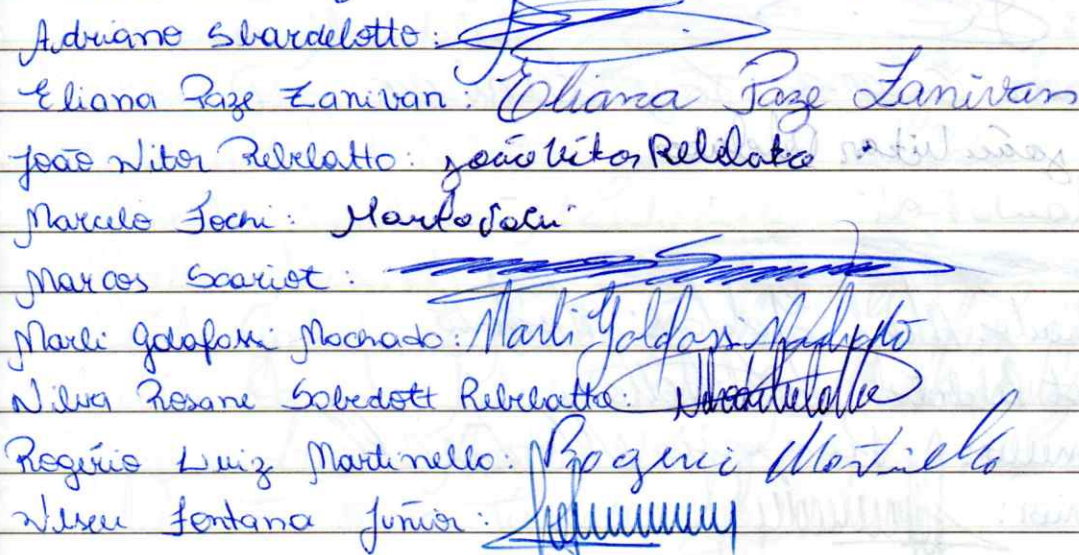 Adriano Sbardelotto:
Eliana Paze Zanivan: Eliana Paze Zanivan
João Vitor Rebelatto: João Vitor Rebelato
Marcelo Fochi:
Marcos Scariot:
Marli Golafossi Machado: Marli
Nilva Rosane Sobedott Rebelatto:
Rogério Luiz Martinello: Rogeri Martinello
Viseu Fontana Júnior: